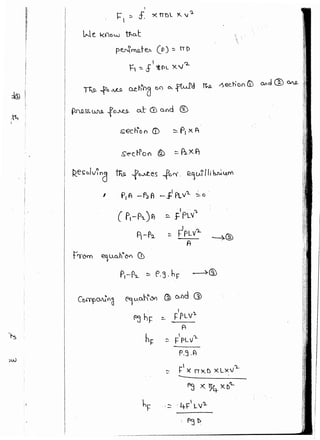 F₁ = f' × πDL × V²
We know that
perimeter (P) = πD
F₁ = f' × PL × V²
The forces acting on a fluid the section ① and ② are
pressure forces at ① and ②
section ① = P₁ × A
section ② = P₂ × A
Resolving the forces for equilibrium
P₁A − P₂A − f'PLV² = 0
(P₁−P₂)A = f'PLV²
P₁−P₂ = f'PLV² / A →③
From equation ①
P₁−P₂ = ρ.g.hF →③
Comparing equation ② and ③
ρg hF = f'PLV² / A
hF = f'PLV² / ρ.g.A
= f' × π × D × L × V² / ρg × π/4 × D²
hF = 4f'LV² / ρg D